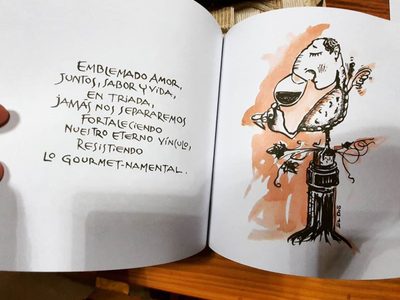 EMBLEMADO AMOR,
JUNTOS, SABOR Y VIDA,
EN TRIADA,
JAMÁS NOS SEPARAREMOS
FORTALECIENDO
NUESTRO ETERNO VÍNCULO,
RESISTIENDO
LO GOURMET-NAMENTAL.